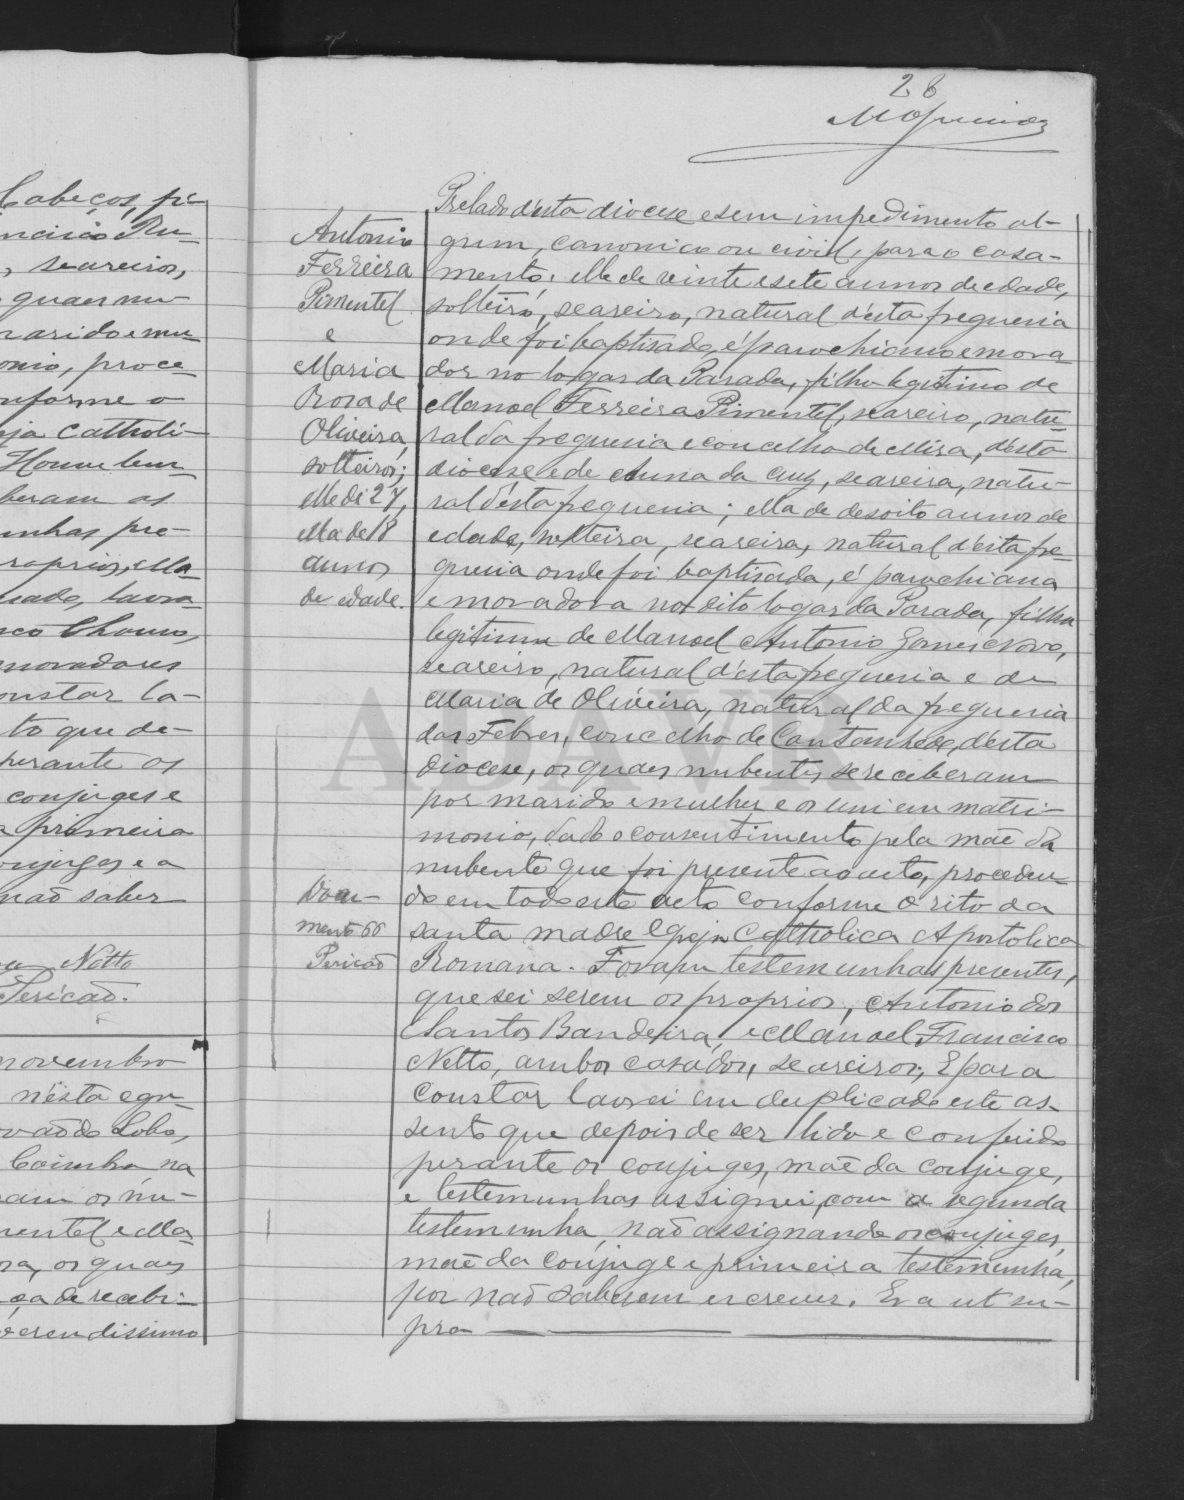 Cabeços, fi-
ncisco Ru-
, seareiros,
quaes nu-
marido e mu-
onio, proce-
nforme o
eja Catholi-
Houve bem
beram os
unhas pre-
roprios, Ma-
nado, lavra-
sco Chouso,
moradores
onstar la-
to que de-
perante os
conjuges e
a primeira
onjuges e a
naõ saber
Netto
Pericaõ.
novembro
n'ésta egre-
vaõ do Lobo,
Coimbra, na
ram os nu-
mentel e Ma-
ra, os quaes
ça de recebi-
verendissimo
28
Antonio
Ferreira
Pimentel
e
Maria
Rosa de
Oliveira,
solteiros;
elle de 27,
ella de 18
annos
de edade.
Docu-
mento 66
Pericaõ
Prelado d'esta diocese e sem impedimento al-
gum, canonico ou civil, para o casa-
mento; elle de vinte e sete annos de edade,
solteiro, seareiro, natural d'esta freguesia
onde foi baptisado, é parochiano e mora-
dor no logar da Parada, filho legitimo de
Manoel Ferreira Pimentel, seareiro, natu-
ral da freguesia e concelho de Mira, d'esta
diocese e de Anna da Cruz, seareira, natu-
ral d'esta freguesia; ella de desoito annos de
edade, solteira, seareira, natural d'esta fre-
guesia onde foi baptisada, é parochiana
e moradora no dito logar da Parada, filha
legitima de Manoel Antonio Gomes Novo,
seareiro, natural d'esta freguesia e de
Maria de Oliveira, natural da freguesia
das Febres, concelho de Cantanhede, d'esta
diocese, os quaes nubentes se receberam
por marido e mulher e os uni em matri-
monio, dado o consentimento pela maẽ da
nubente que foi presente ao acto, proceden-
do em todo este acto conforme o rito da
santa madre Egreja Catholica Apostolica
Romana. Foram testemunhas presentes,
que sei serem os proprios, Antonio dos
Santos Bandeira, e Manoel Francisco
Netto, ambos casados, seareiros; E para
constar lavrei em duplicado este as-
sento que depois de ser lido e conferido
perante os conjuges, maẽ da conjuge,
e testemunhas assignei, com a segunda
testemunha, naõ assignando os conjuges,
maẽ da conjuge e primeira testemunha,
por naõ saberem escrever. Era ut su-
pra
ADAVR